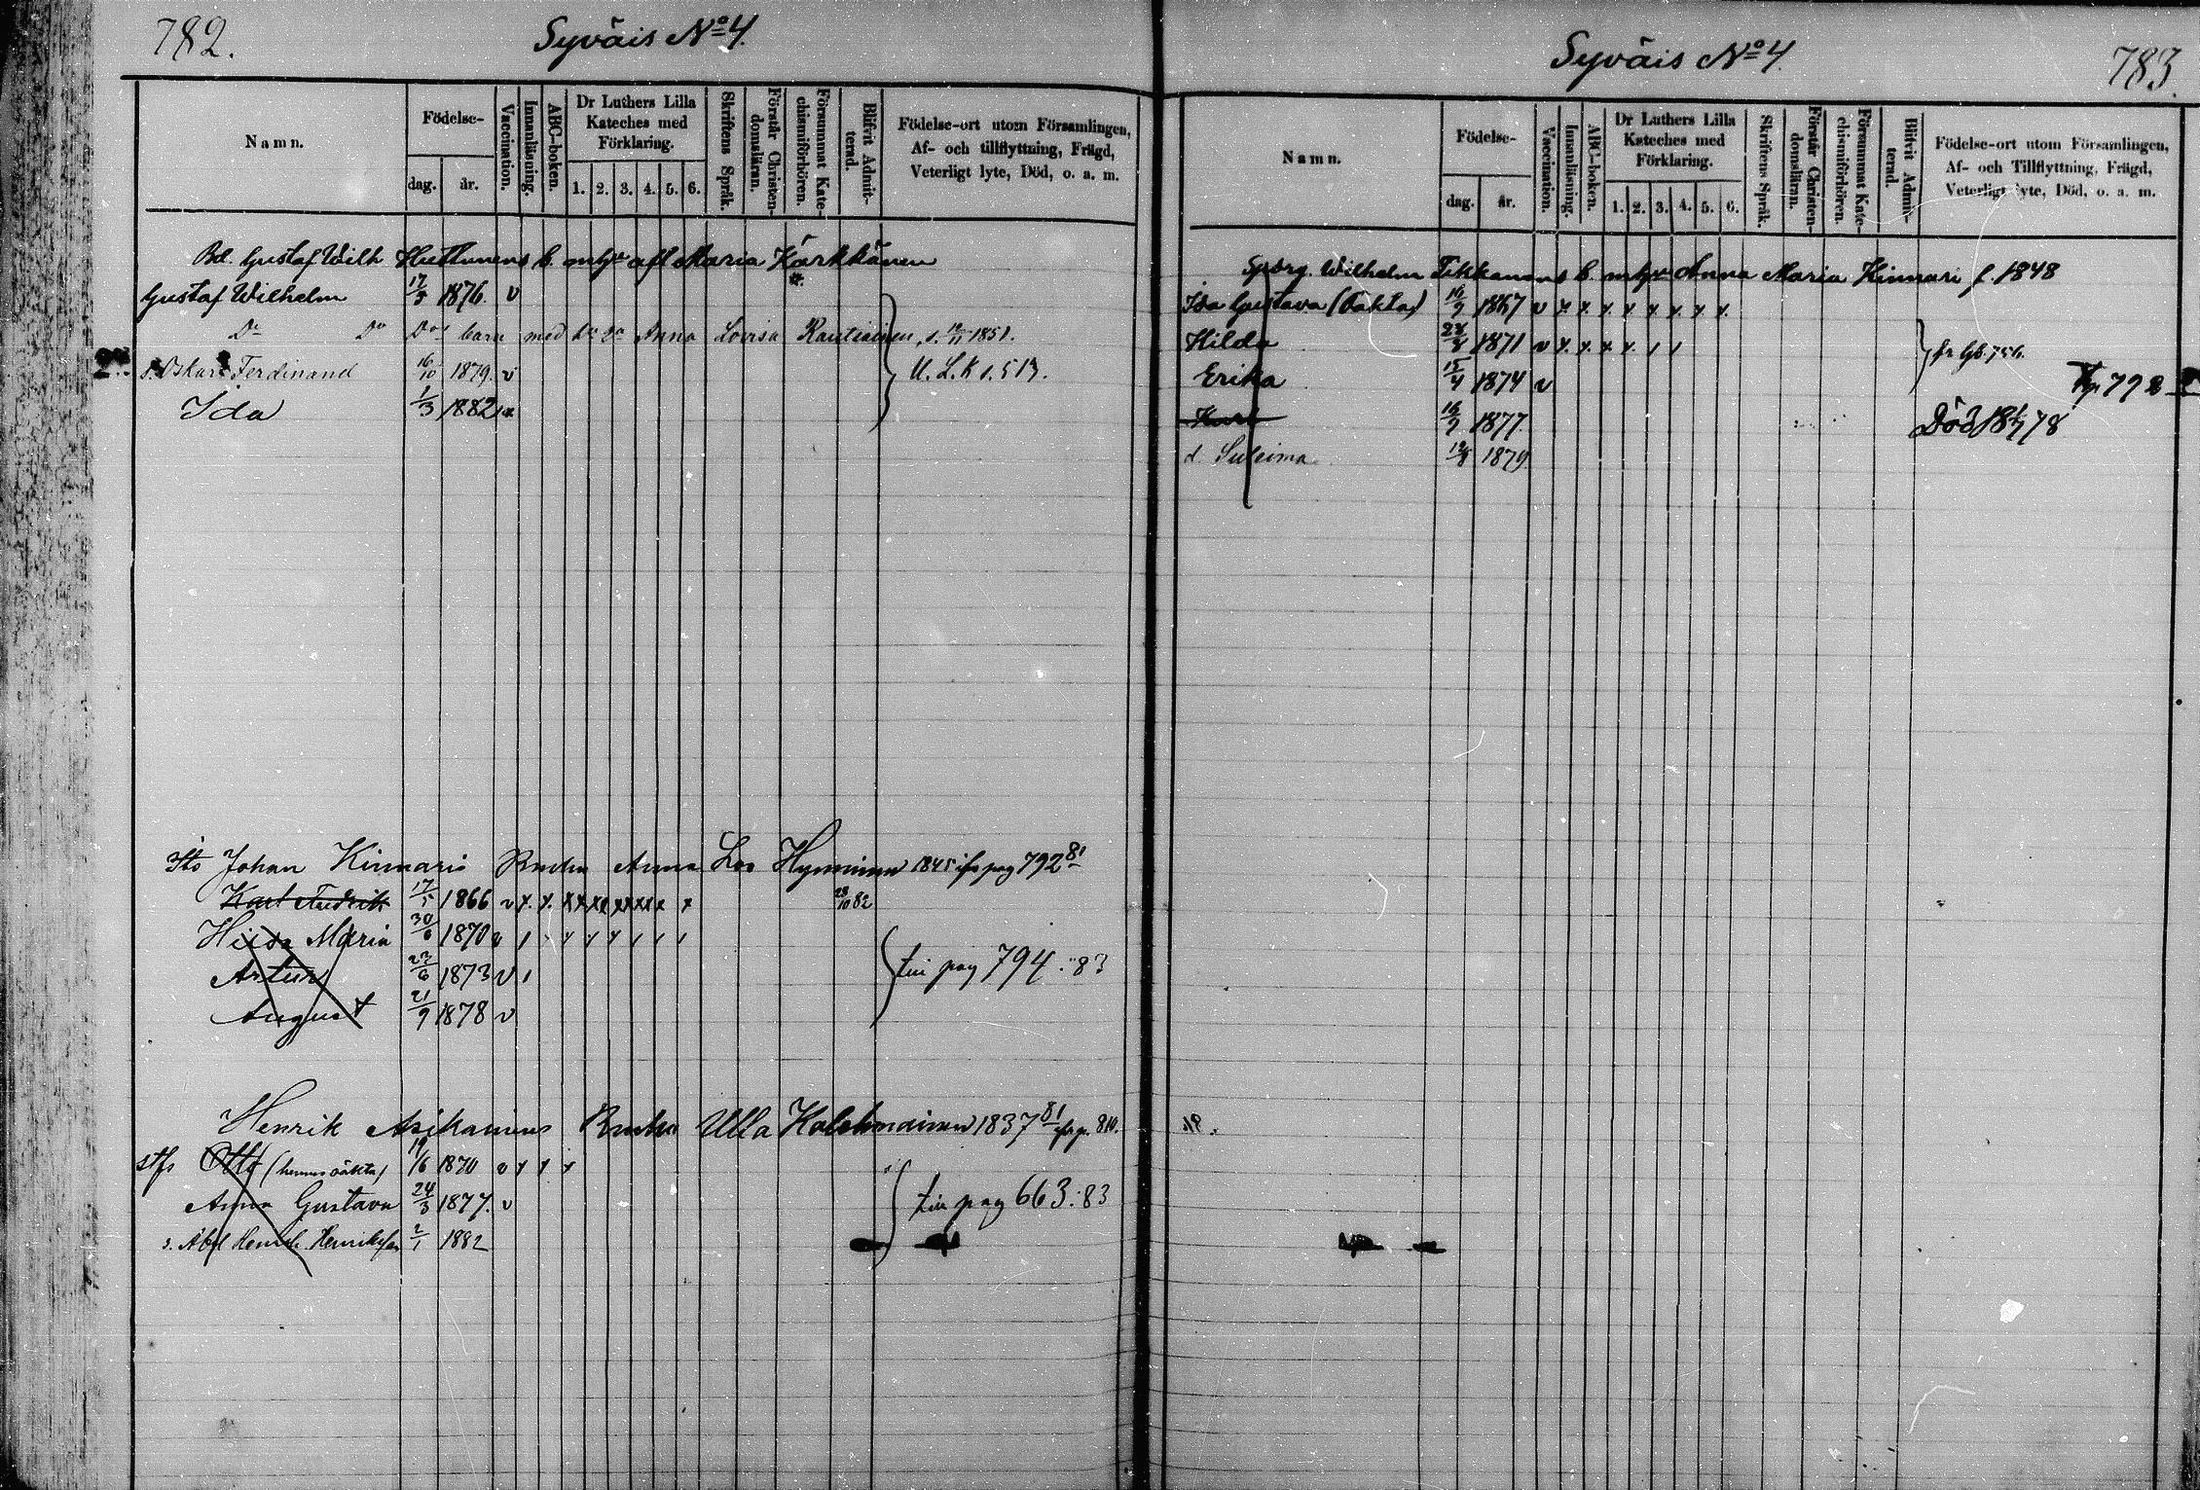 782.
Syväis No 4.
Namn.
Födelse-
dag.
år.
Vaccination.
Innanläsning.
ABC-boken.
Dr Luthers Lilla
Kateches med
Förklaring.
1. 2. 3. 4. 5. 6.
Skriftens Språk.
Förstår Christen-
domsläran.
Försummat Kate-
chismiförhören.
Blifvit Admit-
terad.
Födelse-ort utom Församlingen,
Af- och tillflyttning, Frägd,
Veterligt lyte, Död, o. a. m.
Gustaf Wilh Huttunens b. afl Maria Kärkkänen
Gustaf Wilhelm 17/3 1876. v
Do Do Dos barn med Anna Lovisa Rautiainen, 1851.
s. Oskar Ferdinand 16/10 1879. v U. L. K s. 513.
Ida 1/3 1882
Johan Kinnaris Anna Hynninen 1845 pag 792 81
Karl Fredrik 17/5 1866 v x. x. x x x x x x x 28/10 82
Maria 30/6 1870 v
Artur 23/6 1873 v
August 21/9 1878 v
pag 794. 83
Henrik Asikainens Ulla Kolehmainen 1837 81 p. 810.
Otto (hennes oäkta) 19/6 1870 v x x x
Anna Gustava 24/3 1877. v
pag 663. 83
s. Henrik 2/1 1882
Syväis No 4.
783.
Namn.
Födelse-
dag.
år.
Vaccination.
Innanläsning.
ABC-boken.
Dr Luthers Lilla
Kateches med
Förklaring.
1. 2. 3. 4. 5. 6.
Skriftens Språk.
Förstår Christen-
domsläran.
Försummat Kate-
chismiförhören.
Blifvit Admit-
terad.
Födelse-ort utom Församlingen,
Af- och Tillflyttning, Frägd,
Veterligt lyte, Död, o. a. m.
Wilhelm Tikkanens b. Anna Maria Kinnari f. 1848
Ida Gustava 1867 v x x x x x x x x
Hilda 1871 v x. x. x x.
fr 756.
Erika 1874 v
792
1877.
Död 18 78
d. 1879.